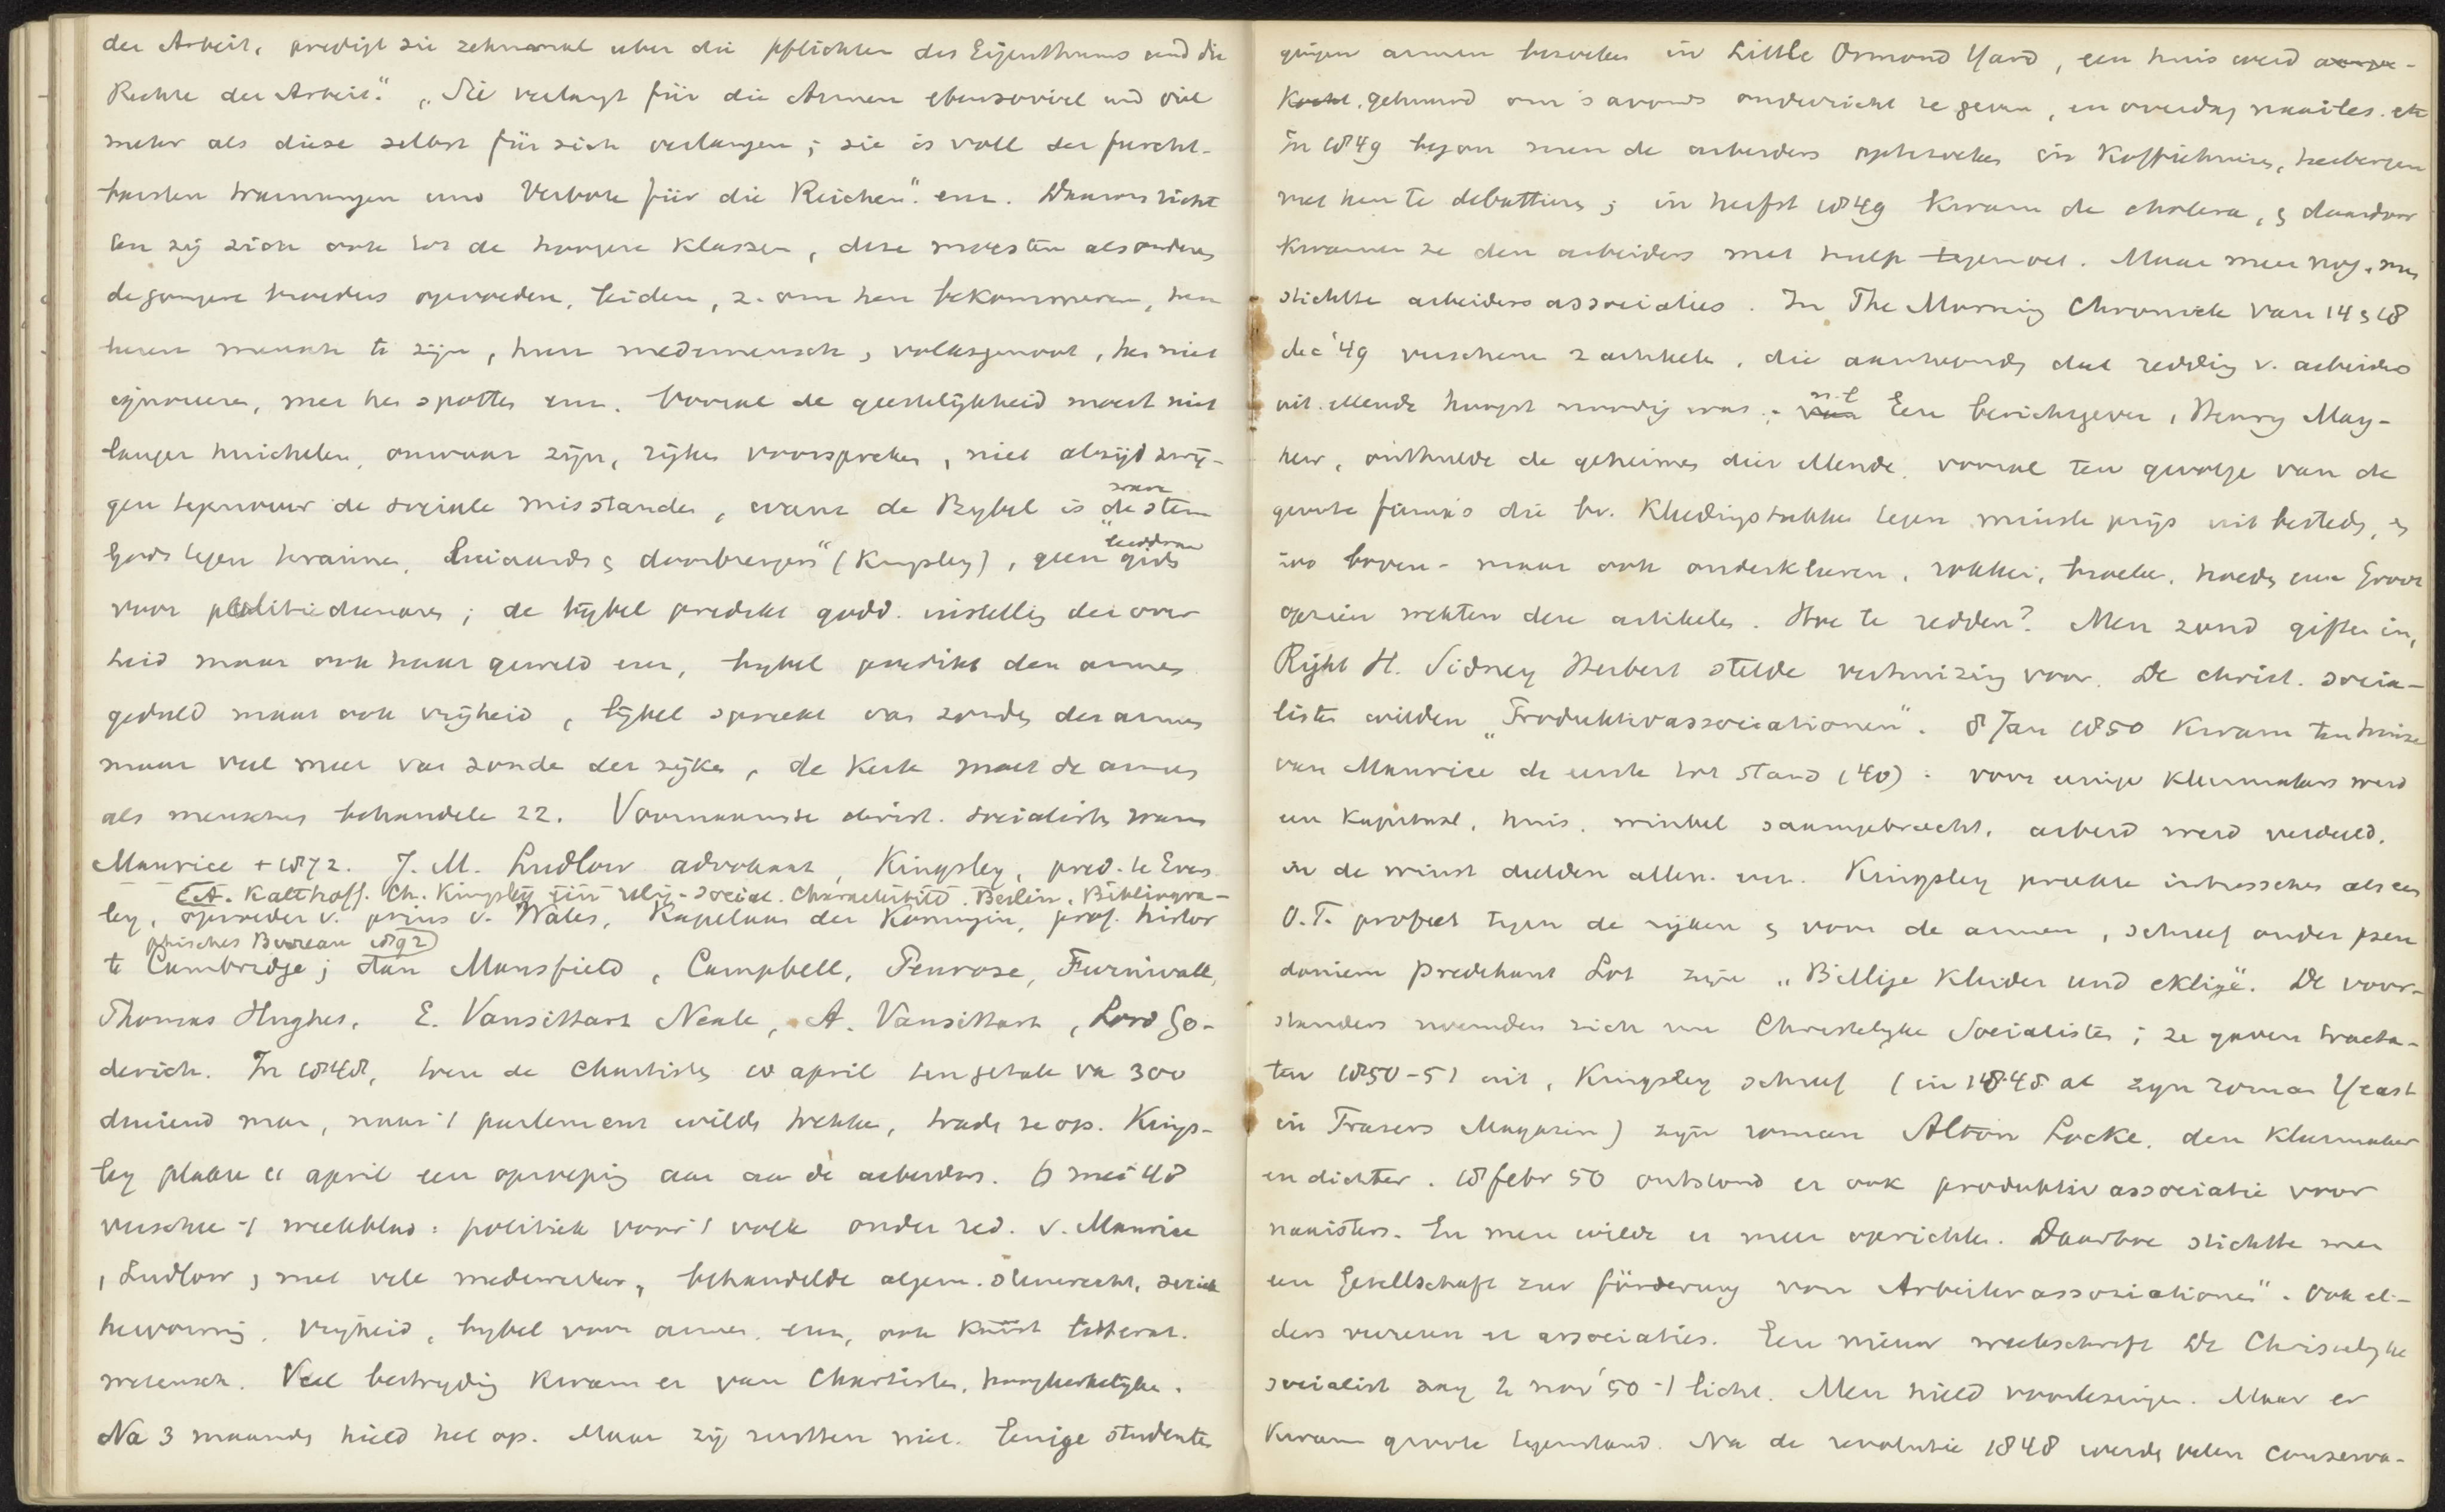 der Arbeit, predigt sie zehnmal uber die pflichten des Eigenthums und die
Rechte der Arbeit." „Sie verlangt für die Armen ebensoviel und viel
mehr als diese selbst für sich verlangen; sie is voll der furcht-
barsten warnungen und Verbote für die Reichen." enz. Daarom richt
ten zij zich ook tot de hoogere klassen, deze moesten als oudere
de jongere broeders opvoeden, leiden, z. om hen bekommeren, hen
leeren mensch te zijn, hun medemensch, volksgenoot, hen niet
ignoreren, met hen spotten enz. Vooral de geestelijkheid moest niet
langer huichelen, onwaar zijn, rijken voorspreken, niet altijd zwij-
gen tegenover de sociale misstanden, want de Bybel is „de stem
Gods tegen tirannen, luiaards & doorbrengers" (Kingsley), geen gids
voor politiedienaars; de bybel predikt godd. instelling der over
heid maar ook haar geweld enz, bybel predikt den armen
geduld maar ook vrijheid, bijbel spreekt van zonden der armen
maar veel meer van zonde der rijken, de Kerk moet de armen
als menschen behandelen 22. Voornaamste christ. socialisten waren
Maurice + 1872. J. M. Ludlow advokaat, Kingsley, pred. te Evers
(A. Kalthoff. Ch. Kingsley ein relig-social. Charakterbild. Berlin. Bibliogra-
ley, opvoeder v. prins v. Wales, Kapelaan der Koningin, prof. histor
phisches Bureau 1892)
te Cambridge; dan Mansfield, Campbell, Penrose, Furnivall,
Thomas Hughes, E. Vansittart Neale, A. Vansittart, Lord Go-
derich. In 1848, toen de Chartisten 10 april ten getale van 300
duizend man, naar 't parlement wilden trekken, traden ze op. Kings-
ley plakte 11 april een oproeping aan aan de arbeiders. 6 mei 48
verscheen 't weekblad: politiek voor 't volk onder red. v. Maurice
, Ludlow, met vele medewerkers, behandelde algem. stemrecht,
vrijheid, bybel voor armen enz, ook kunst litterat.
wetensch. Veel bestryding kwam er van Chartisten, hoogkerkelijken.
Na 3 maanden hield het op. Maar zij rustten niet. Eenige studenten
gingen armen bezoeken in Little Ormond Yard, een huis werd aange-
kocht, gehuurd om 's avonds onderricht te geven, en overdag naailes. etc
In 1849 begon men de arbeiders opzoeken in Koffiehuizen, herbergen
met hen te debatteren; in herfst 1849 kwam de cholera, & daardoor
kwamen ze den arbeiders met hulp tegemoet. Maar meer nog, men
stichtte arbeidersassociaties. In The Morning Chronicle van 14 & 18
dec '49 verschenen 2 artikelen, die aantoonden dat redding v. arbeiders
uit ellende hoogst noodig was; n.l. Een berichtgever, Henry May-
hew, onthulde de geheimen dier ellende, vooral ten gevolge van de
groote firma's die bv. Kledingstukken tegen minste prijs uit besteden, &
zoo boven- maar ook onderkleren, rokken, broeken, hoeden enz Groot
opzien wekten deze artikelen. Hoe te redden? Men zond giften in,
Right H. Sidney Herbert stelde verhuizing voor. De christ. socia-
listen wilden „Produktivassociationen". 8 Jan 1850 kwam ten huize
van Maurice de eerste tot stand (40): voor enige kleermakers werd
een kapitaal, huis, winkel saamgebracht, arbeid werd verdeeld,
in de winst deelden allen. enz. Kingsley preekte intusschen als een
O.T. profeet tegen de rijken & voor de armen, schreef onder pseu
doniem Predikant Lot zijn „Billige Kleider und eklige". De voor-
standers noemden zich nu Christelyke Socialisten; ze gaven tracta-
ten 1850-51 uit, Kingsley schreef (in 1848 al zyn roman Yeast
in Frasers Magazin) zijn roman Alton Locke, den kleermaker
en dichter. 18 febr 50 ontstond er ook produktiv associatie voor
naaisters. En men wilde er meer oprichten. Daartoe stichtte men
een Gesellschaft zur förderung von Arbeiterassoziationen". Ook el-
ders verrezen er associaties. Een nieuw weekschrift De Christelyke
socialist zag 2 nov '50 't licht. Men hield voorlezingen. Maar er
kwam groote tegenstand. Na de revolutie 1848 werden velen conserva-